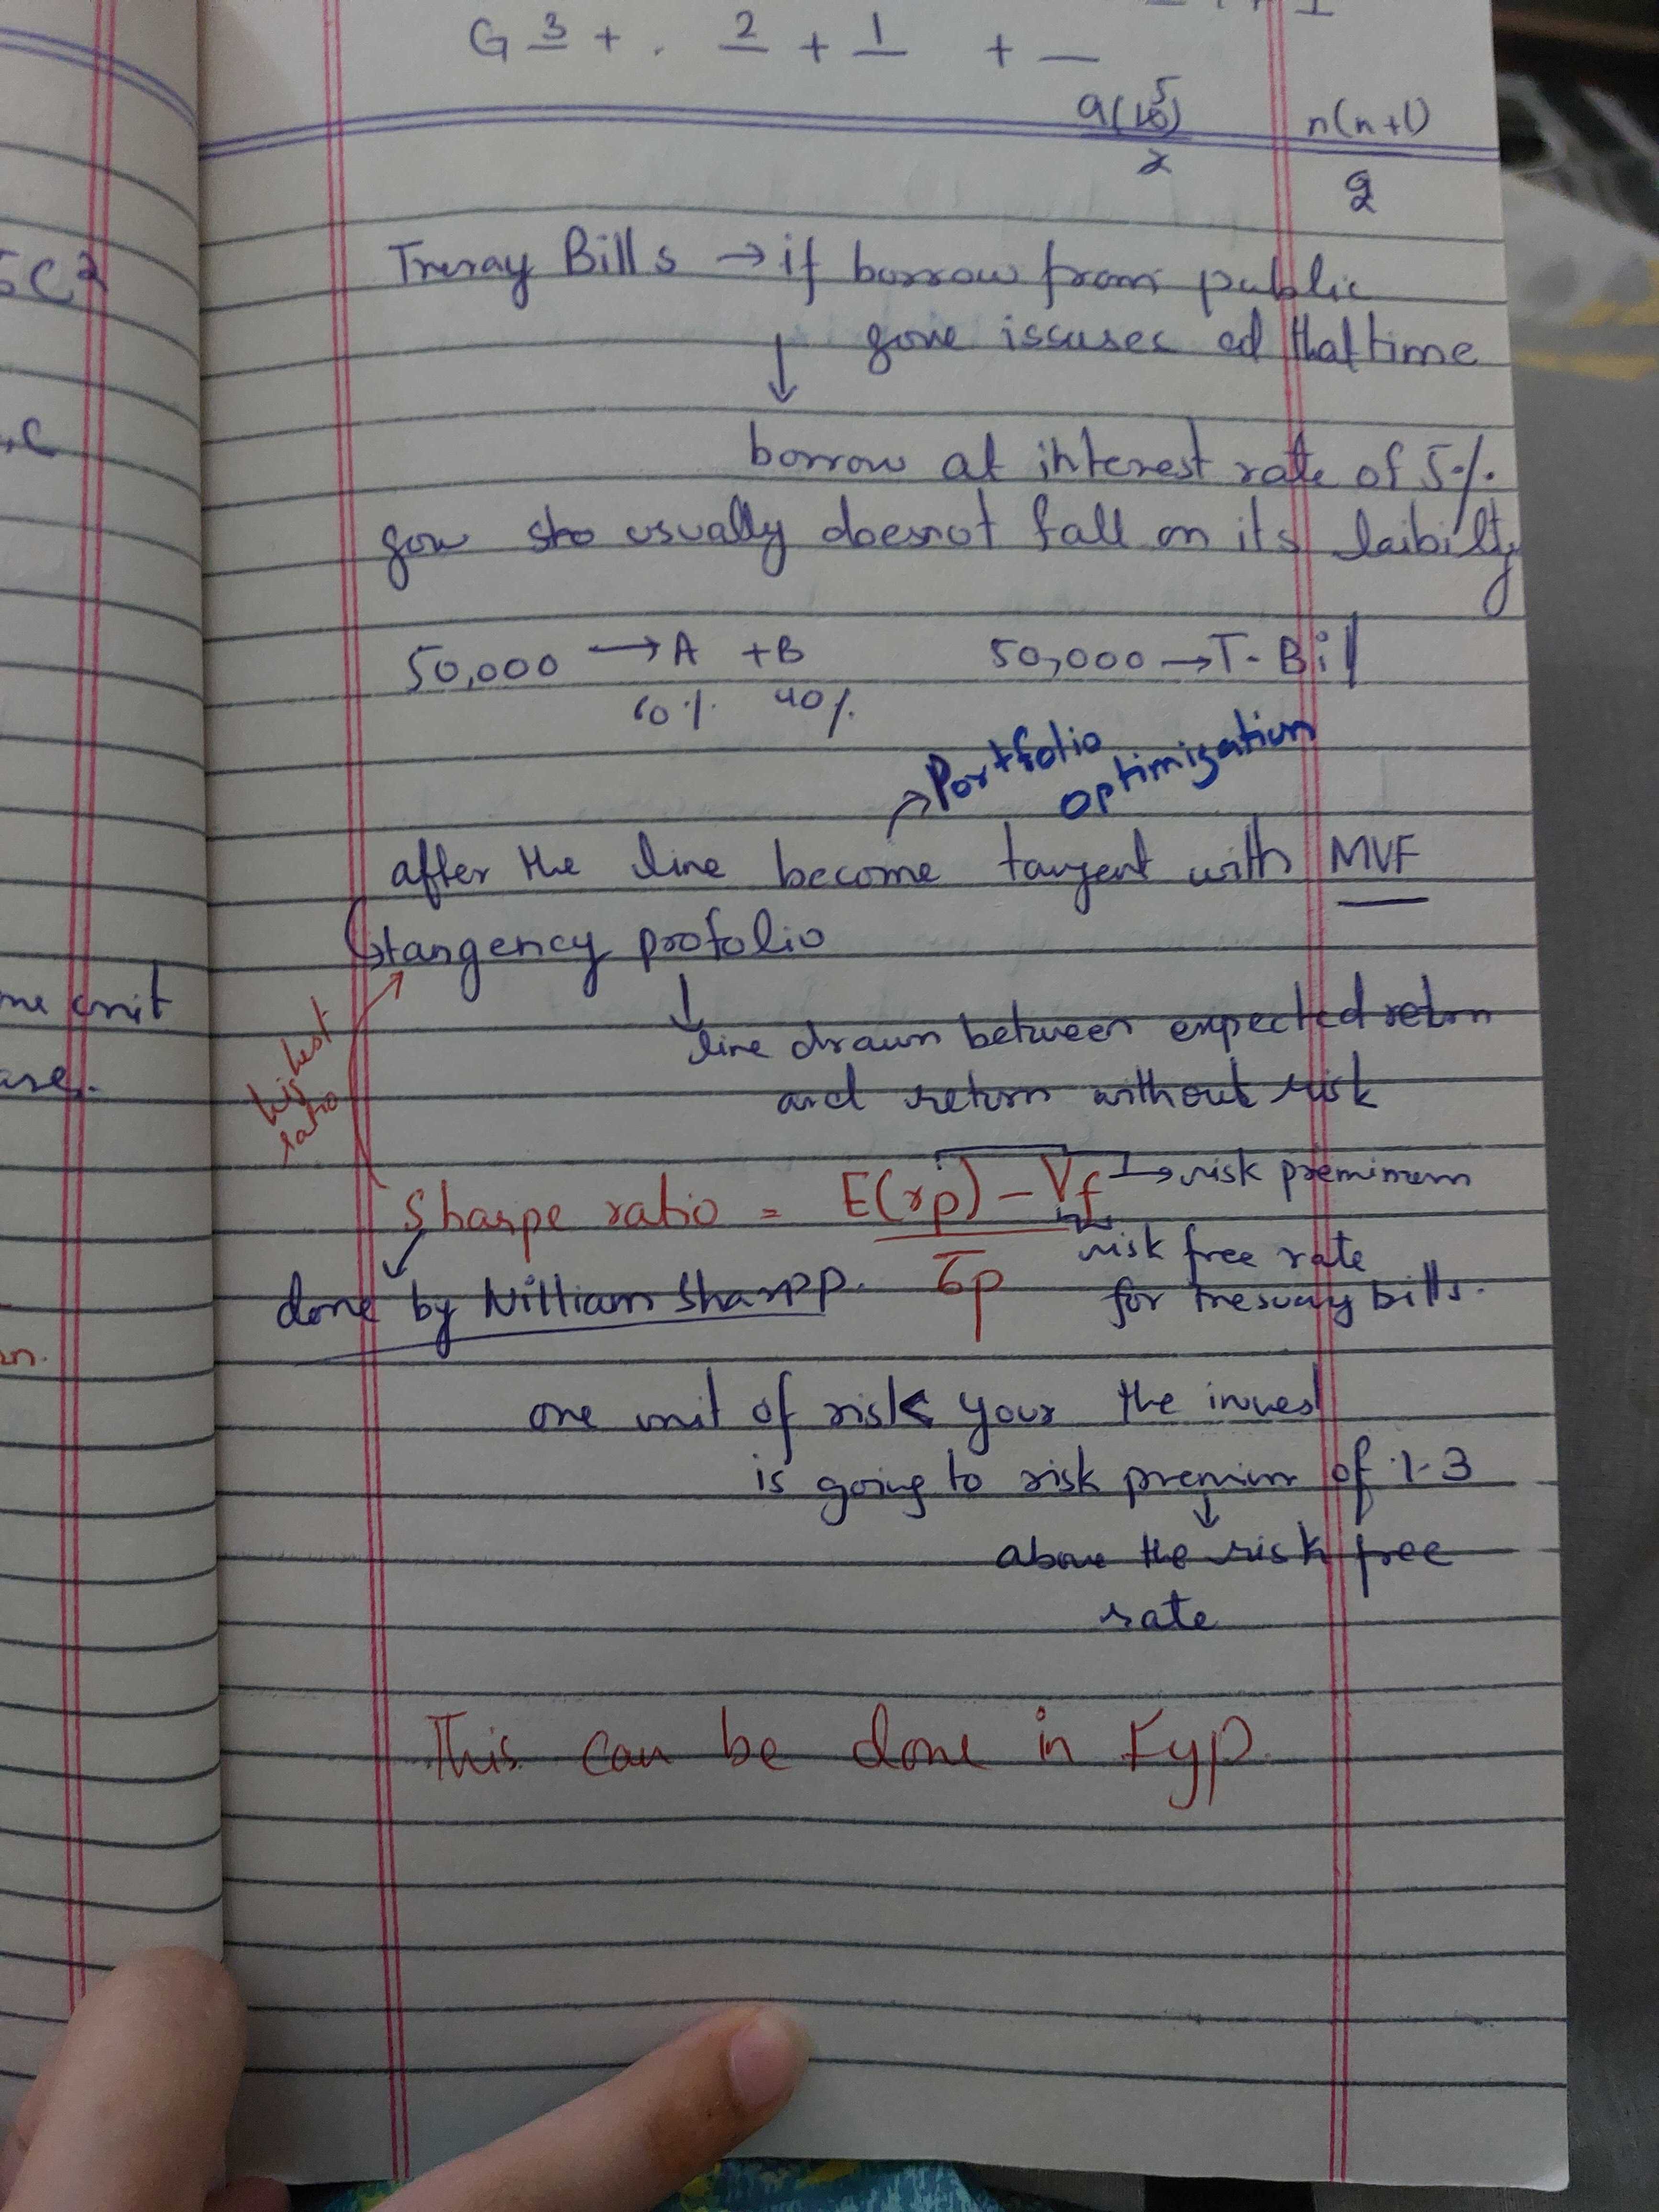 5C²
,C
me unit
are.
n.
G 3 + . 2 + 1 + _
9(10) 5 n(n+1)
2 2
Tresray Bills → if borrow from public
↓ gove issuses ad that time
borrow at interest rate of 5%.
gov usually doesnot fall on its laibilty
50,000 → A + B 50,000 → T-Bill
60% 40%
→ Portfolio optimization
after the line become tangent with MVF
tangency profolio
↓
line drawn between expected retrn
and return without risk
highest ratio
Sharpe ratio = E(rp) - Vf → risk premimum
σp
risk free rate
for tresuary bills.
done by William Sharpp.
one unit of risk your the invest
is going to risk premium of 1.3
↓
above the risk free
rate
This can be done in Fyp.